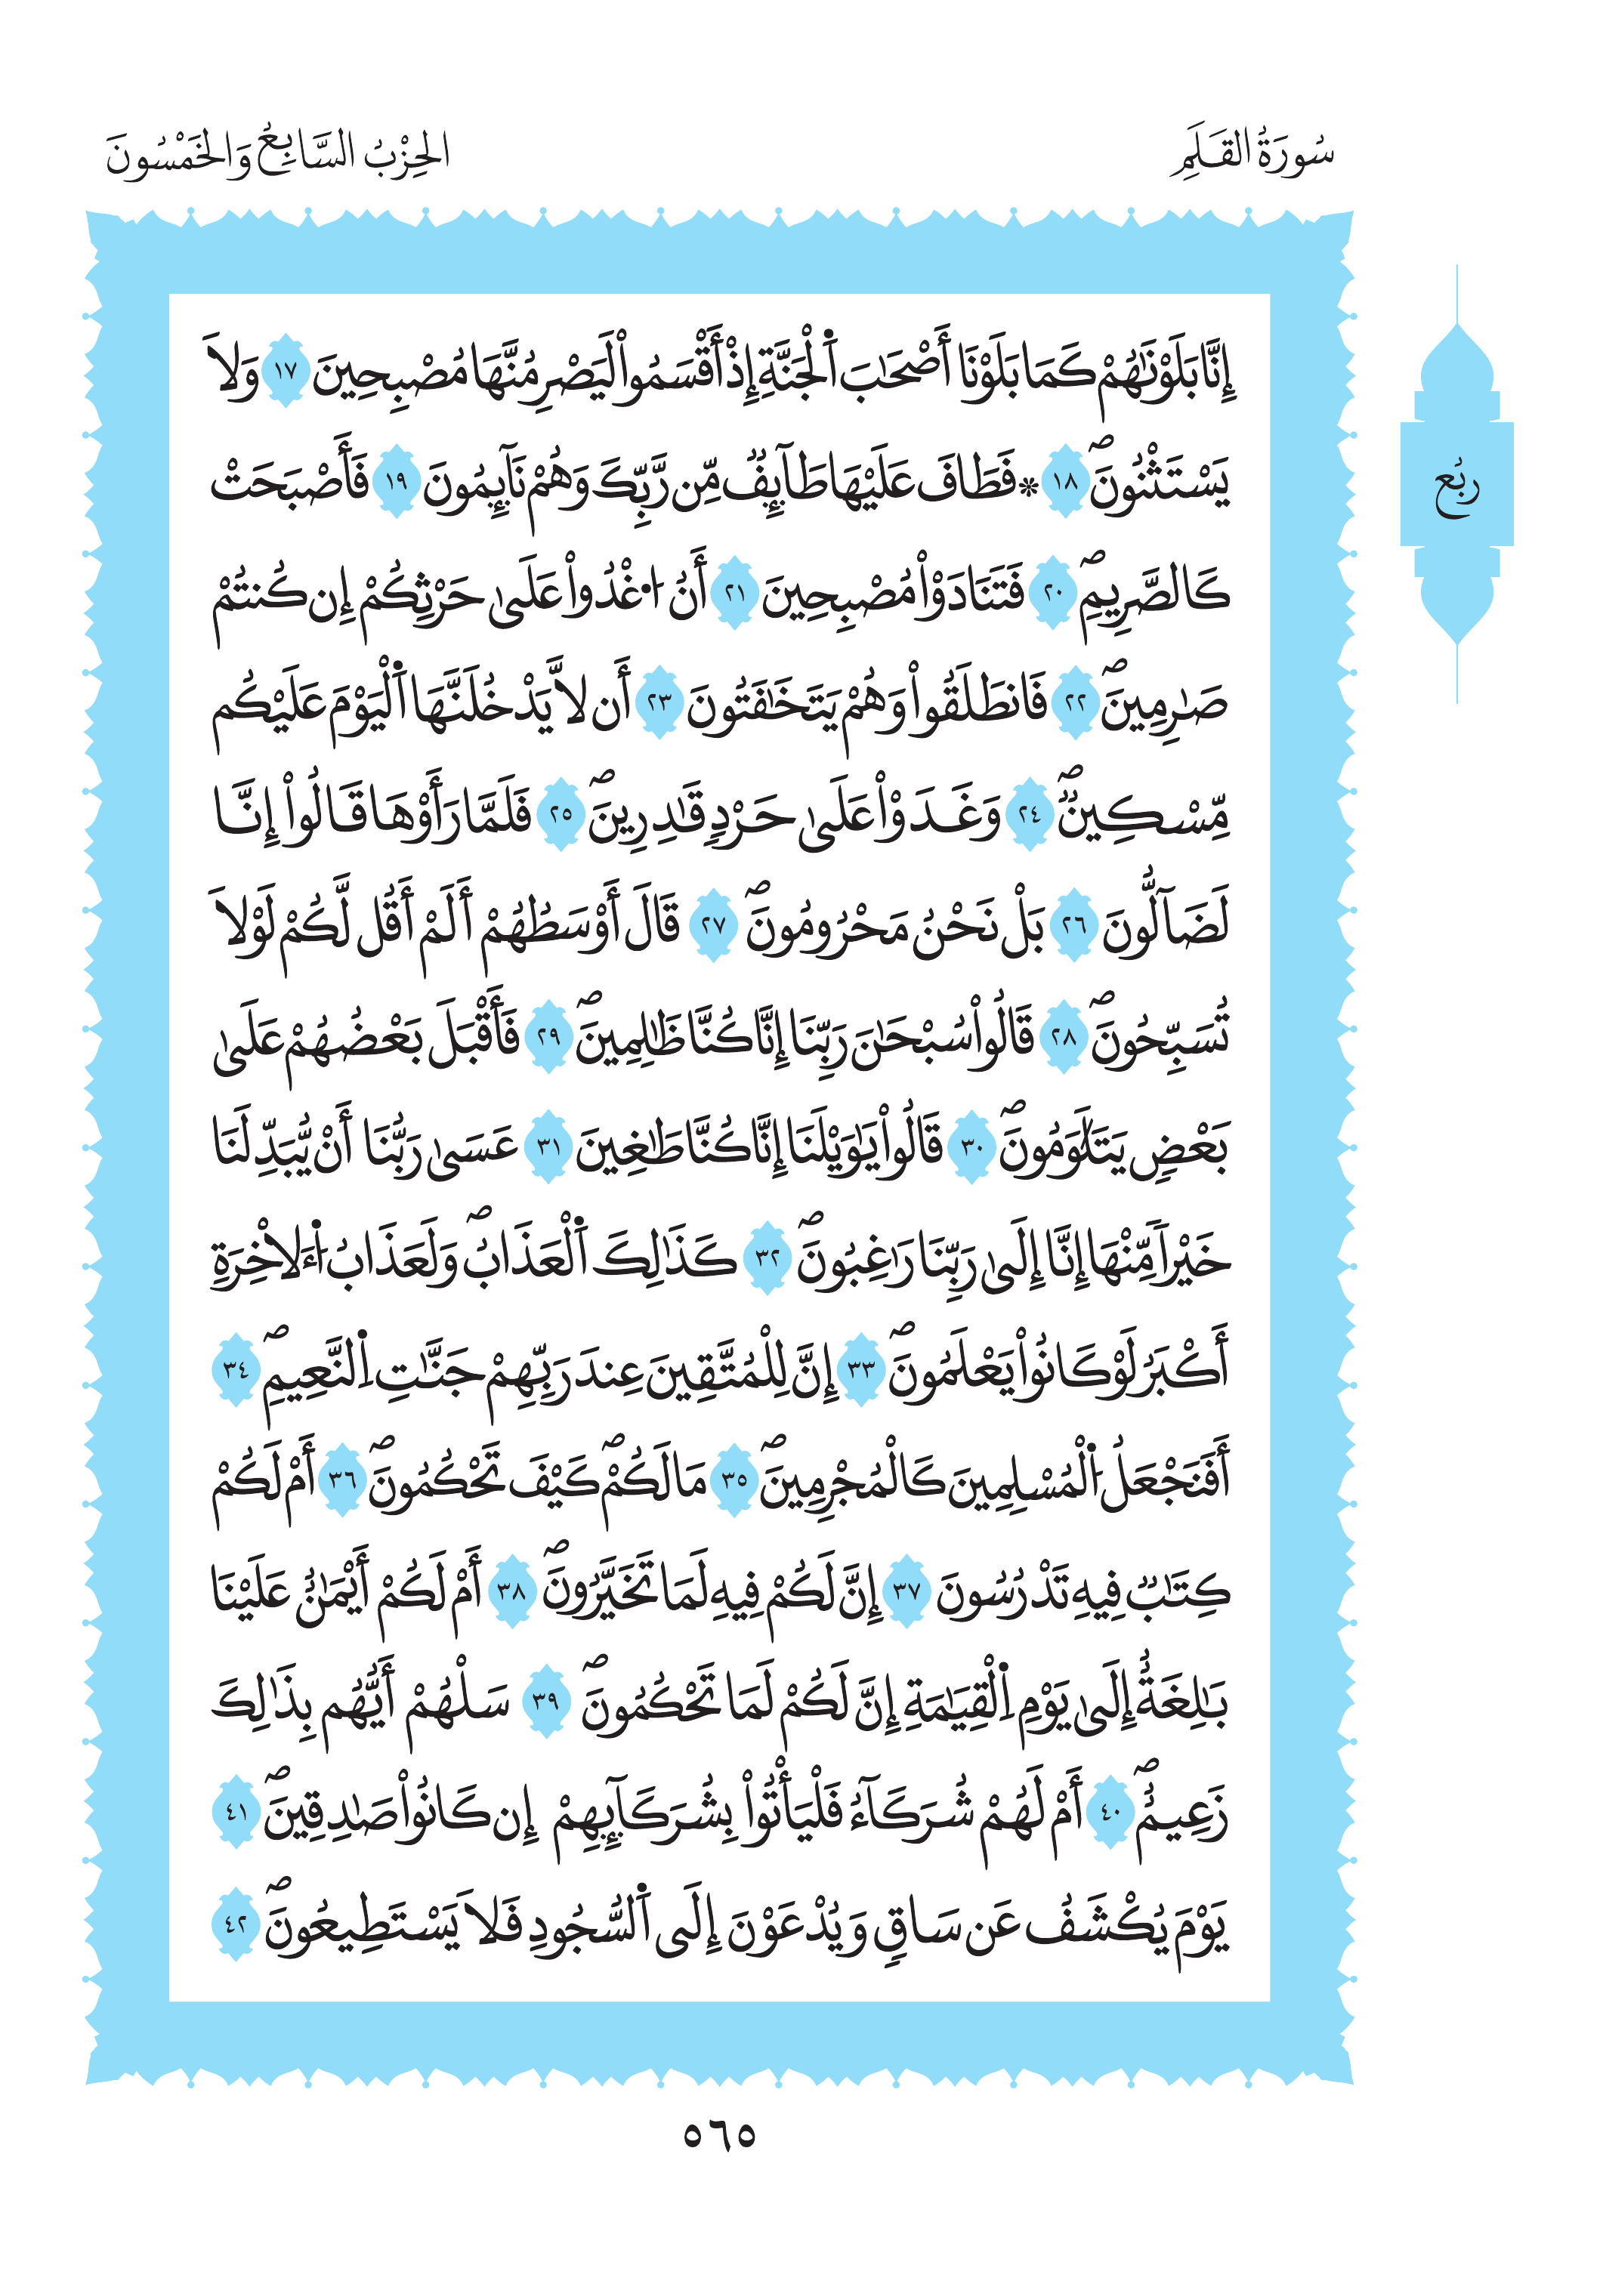 سُورَةُ القَلَمِ
الحِزْبُ السَّابِعُ وَالخَمْسُونَ
إِنَّا بَلَوْنَٰهُمْ كَمَا بَلَوْنَا أَصْحَٰبَ اَ۬لْجَنَّةِ إِذْ أَقْسَمُواْ لَيَصْرِمُنَّهَا مُصْبِحِينَ ١٧ وَلَا
يَسْتَثْنُونَۖ ١٨ * فَطَافَ عَلَيْهَا طَآئِفٞ مِّن رَّبِّكَ وَهُمْ نَآئِمُونَ ١٩ فَأَصْبَحَتْ
كَالصَّرِيمِۖ ٢٠ فَتَنَادَوْاْ مُصْبِحِينَ ٢١ أَنُ اُ۟غْدُواْ عَلَىٰ حَرْثِكُمْ إِن كُنتُمْ
صَٰرِمِينَۖ ٢٢ فَانطَلَقُواْ وَهُمْ يَتَخَٰفَتُونَ ٢٣ أَن لَّا يَدْخُلَنَّهَا اَ۬لْيَوْمَ عَلَيْكُم
مِّسْكِينٞۖ ٢٤ وَغَدَوْاْ عَلَىٰ حَرْدٖ قَٰدِرِينَۖ ٢٥ فَلَمَّا رَأَوْهَا قَالُواْ إِنَّا
لَضَآلُّونَ ٢٦ بَلْ نَحْنُ مَحْرُومُونَۖ ٢٧ قَالَ أَوْسَطُهُمْ أَلَمْ أَقُل لَّكُمْ لَوْلَا
تُسَبِّحُونَۖ ٢٨ قَالُواْ سُبْحَٰنَ رَبِّنَا إِنَّا كُنَّا ظَٰلِمِينَۖ ٢٩ فَأَقْبَلَ بَعْضُهُمْ عَلَىٰ
بَعْضٖ يَتَلَٰوَمُونَۖ ٣٠ قَالُواْ يَٰوَيْلَنَا إِنَّا كُنَّا طَٰغِينَ ٣١ عَسَىٰ رَبُّنَا أَنْ يُّبَدِّلَنَا
خَيْراٗ مِّنْهَا إِنَّا إِلَىٰ رَبِّنَا رَٰغِبُونَۖ ٣٢ كَذَٰلِكَ اَ۬لْعَذَابُۖ وَلَعَذَابُ اُ۬لَاخِرَةِ
أَكْبَرُ لَوْ كَانُواْ يَعْلَمُونَۖ ٣٣ إِنَّ لِلْمُتَّقِينَ عِندَ رَبِّهِمْ جَنَّٰتِ اِ۬لنَّعِيمِۖ ٣٤
أَفَنَجْعَلُ اُ۬لْمُسْلِمِينَ كَالْمُجْرِمِينَۖ ٣٥ مَا لَكُمْۖ كَيْفَ تَحْكُمُونَۖ ٣٦ أَمْ لَكُمْ
كِتَٰبٞ فِيهِ تَدْرُسُونَ ٣٧ إِنَّ لَكُمْ فِيهِ لَمَا تَخَيَّرُونَۖ ٣٨ أَمْ لَكُمْ أَيْمَٰنٌ عَلَيْنَا
بَٰلِغَةٌ إِلَىٰ يَوْمِ اِ۬لْقِيَٰمَةِ إِنَّ لَكُمْ لَمَا تَحْكُمُونَۖ ٣٩ سَلْهُمْ أَيُّهُم بِذَٰلِكَ
زَعِيمٌۖ ٤٠ أَمْ لَهُمْ شُرَكَآءُ فَلْيَأْتُواْ بِشُرَكَآئِهِمْ إِن كَانُواْ صَٰدِقِينَۖ ٤١
يَوْمَ يُكْشَفُ عَن سَاقٖ وَيُدْعَوْنَ إِلَى اَ۬لسُّجُودِ فَلَا يَسْتَطِيعُونَۖ ٤٢
ربُع
٥٦٥